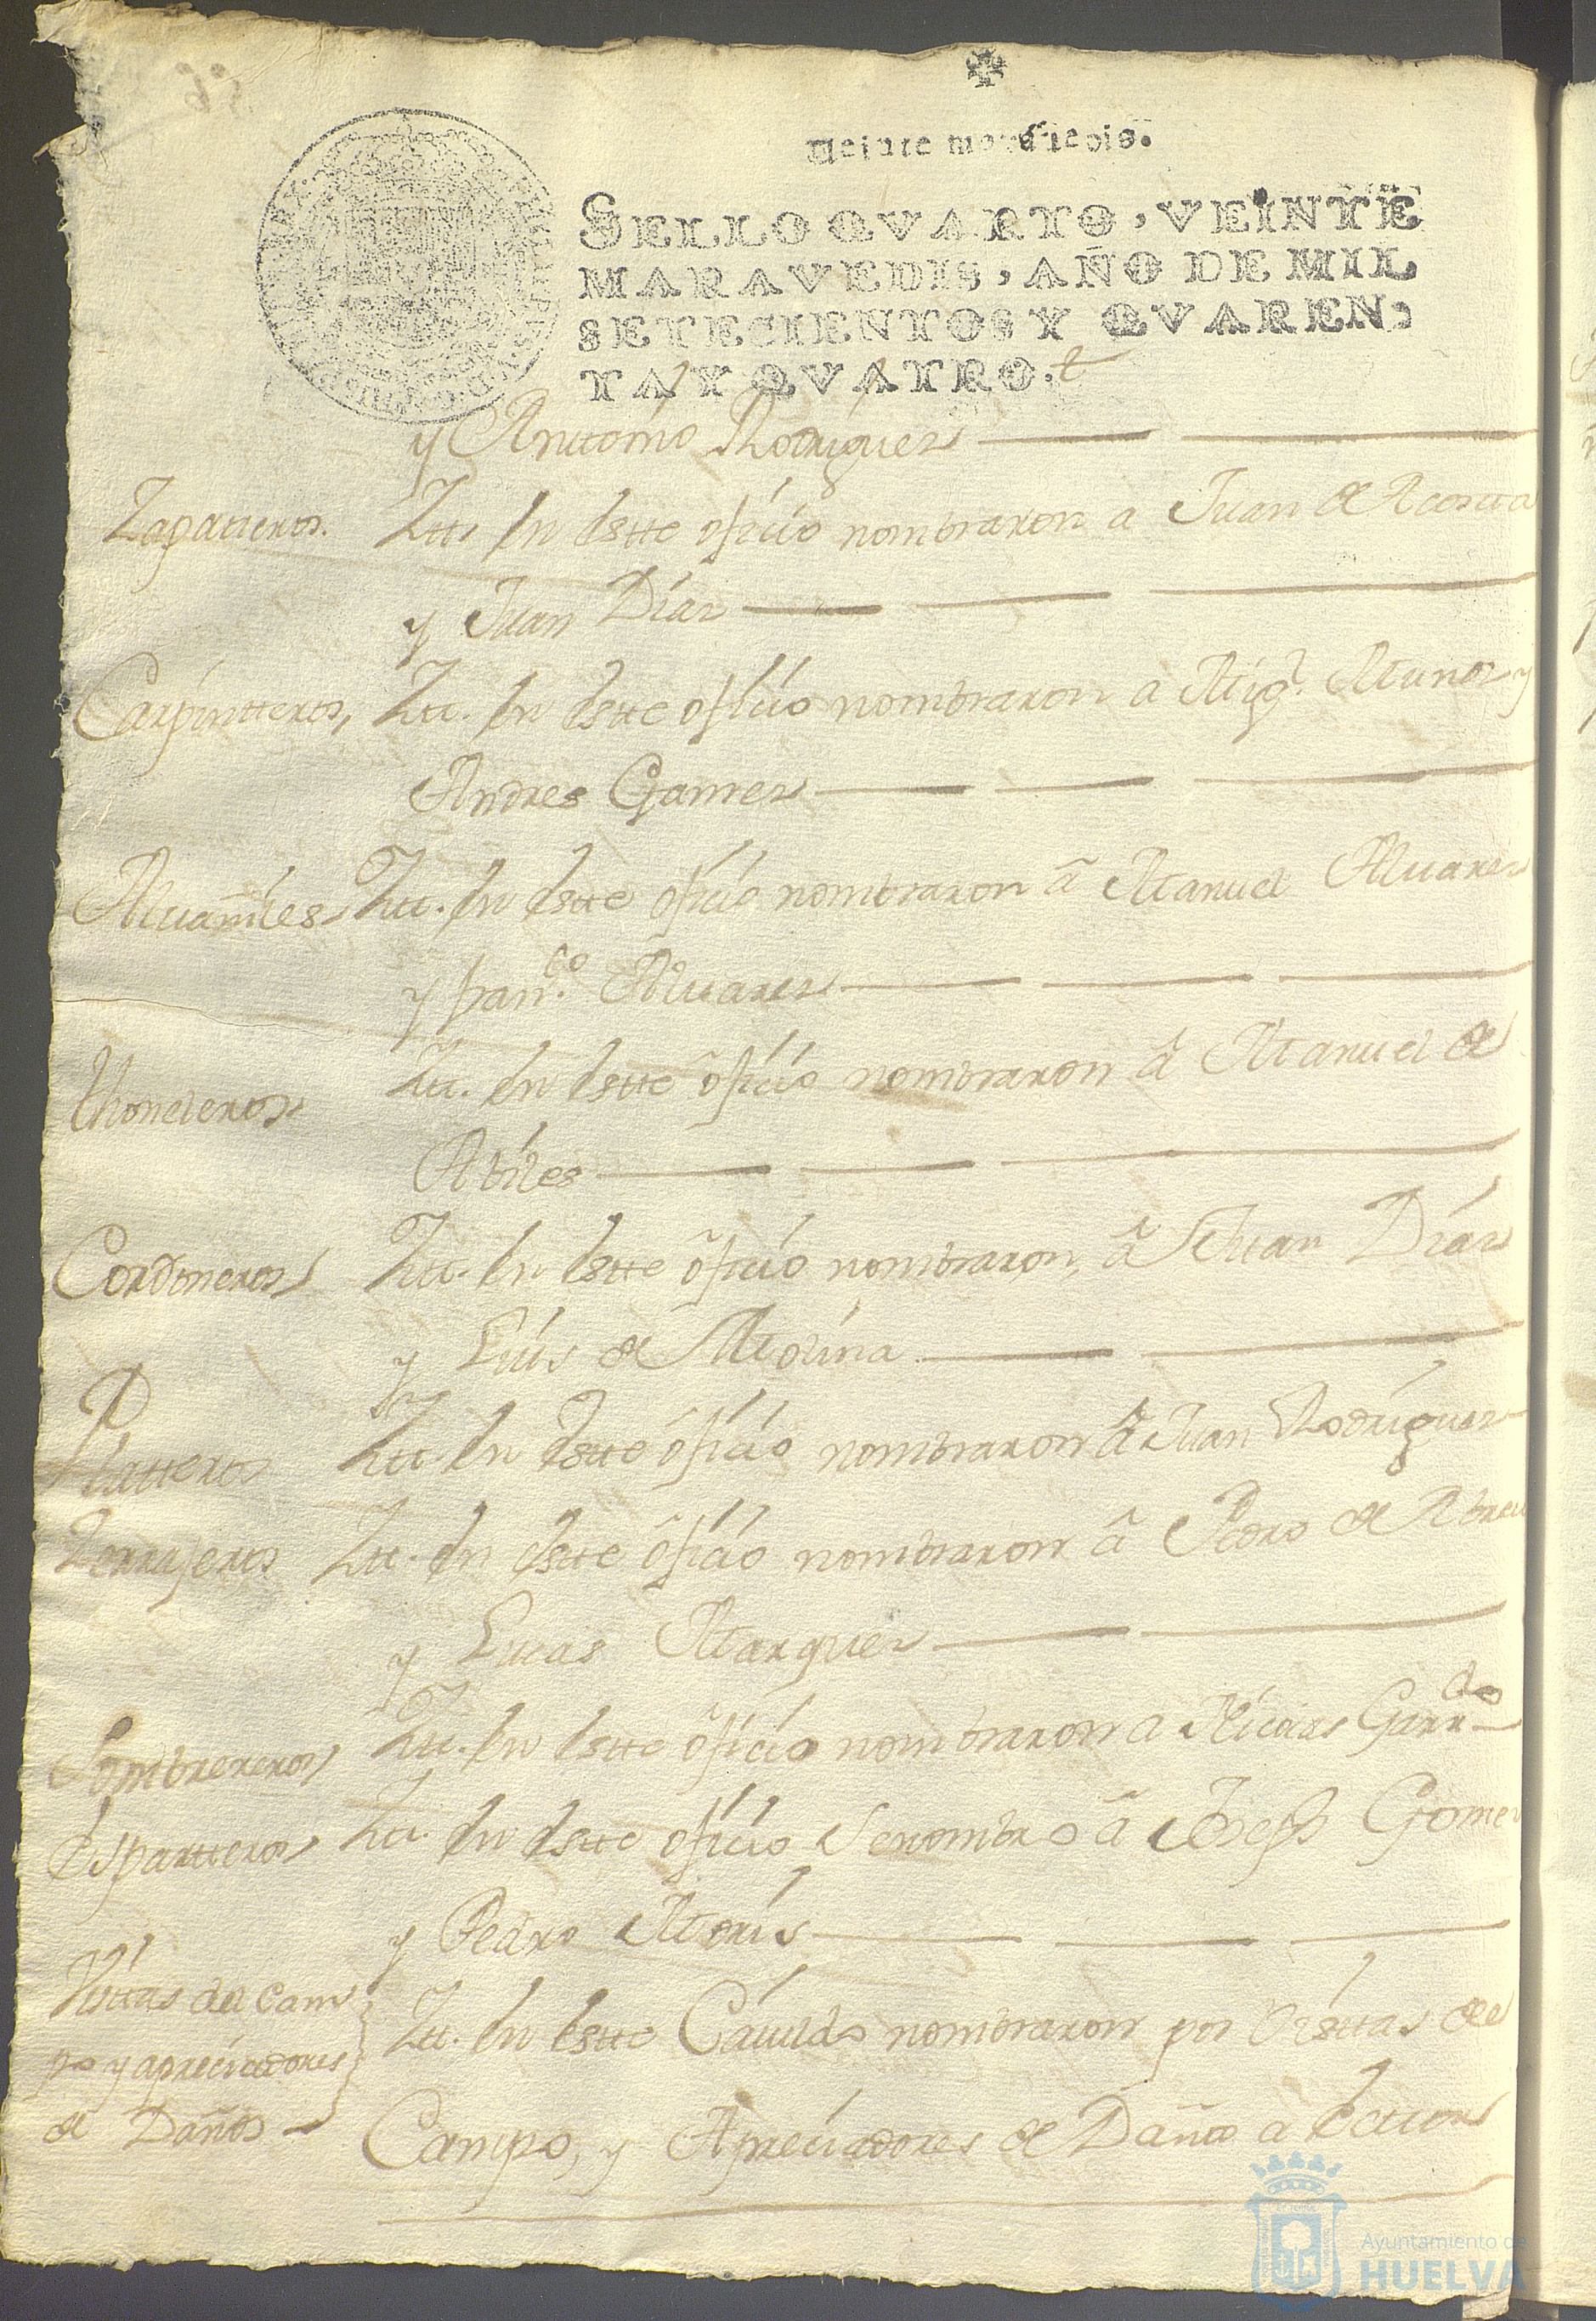 Veinte maravedis.
SELLO QVARTO, VEINTE
MARAVEDIS, AÑO DE MIL
SETECIENTOS Y QVAREN-
TA Y QVATRO.
y Anttonio Rodriguez
Zapatteros. Itt. En Estte ofiçio nombraron a Juan de Acosta
y Juan Díaz
Carpintteros, Itt. En Estte ofiçio nombraron a Migl. Munoz y
Andres Gamez
Alvamíles Itt. En Estte ofiçio nombraron â Manuel Alvarez
y Franco. Alvarez
Itt. En Estte ôfiçio nombraron â Manuel de
Thoneleros
Abiles
Cordoneros Itt. En Estte ôfiçio nombraron, â Juan Díaz
y Luis de Molina
Platteros Itt. En Estte ôfiçio nombraron â Juan Rodríguez
Zerrajeros Itt. En Estte ôfiçio nombraron â Pedro de Abreu
y Lucas Marquez
Sombrereros Itt. En Estte ôfiçio nombraron a Nicolas Garrdo
Espartteros Itt. En Estte ofiçio Se nombro â Joseph Gomez
y Pedro Morís
Vísttas del Cam
po y apreciadores
de Daños
Itt. En Estte Cavildo nombraron por Vísttas de
Campo, y Apreciadores de Daños a
Ayuntamiento de
HUELVA